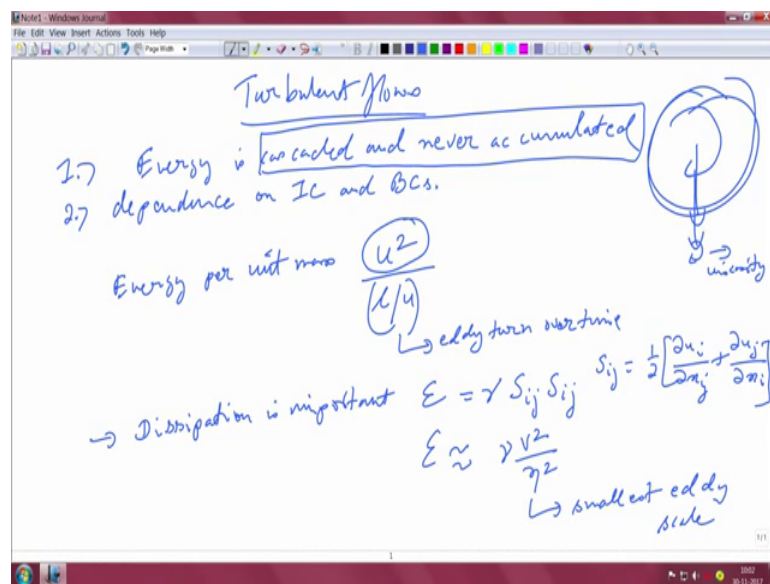 Note1 - Windows Journal
File Edit View Insert Actions Tools Help
Page Width
B
Turbulent flows
1.) Energy is cascaded and never accumulated
2.) dependence on IC and BCs.
→ viscosity
Energy per unit mass u² / (l/u)
↳ eddy turn over time
→ Dissipation is important ε = ν Sij Sij Sij = 1/2 [∂ui/∂xj + ∂uj/∂xi]
ε ≈ ν v²/η²
↳ smallest eddy
scale
1/1
1
10:02
30-11-2017